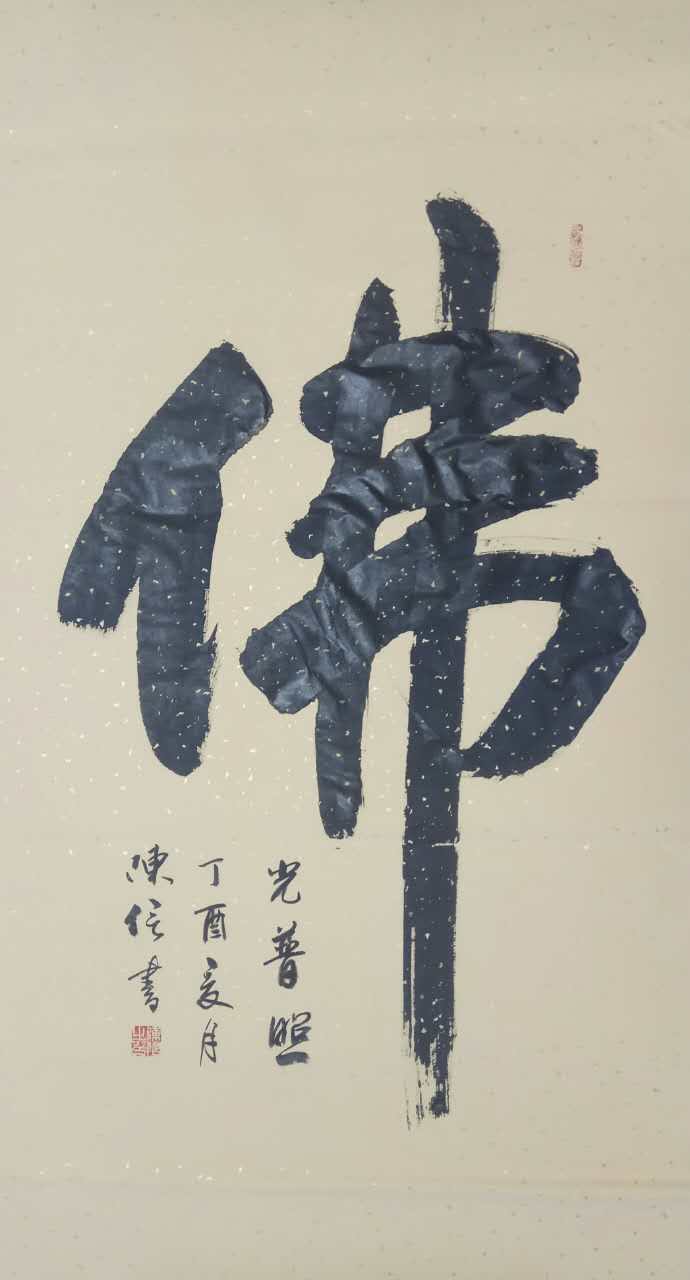 佛
光普照
丁酉夏月
陳信書